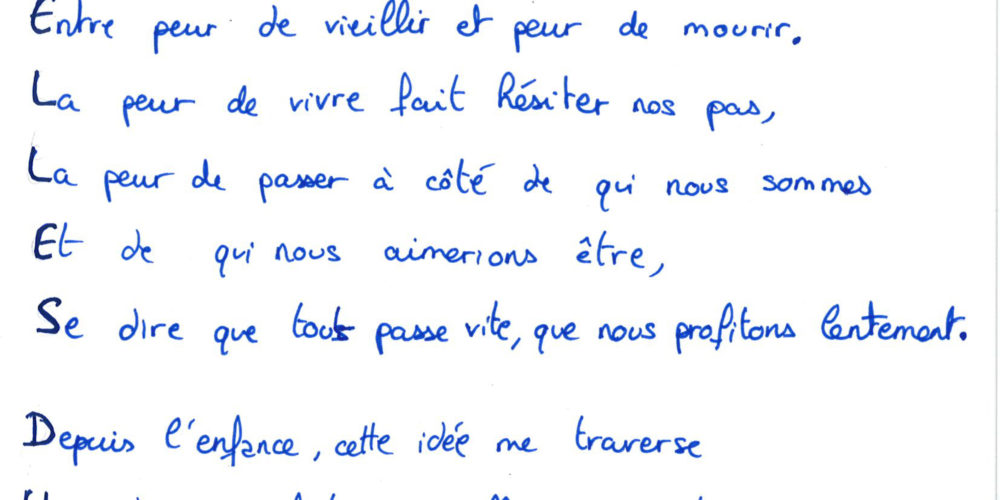 Entre peur de vieillir et peur de mourir.
La peur de vivre fait hésiter nos pas,
La peur de passer à côté de qui nous sommes
Et de qui nous aimerions être,
Se dire que tout passe vite, que nous profitons lentement.
Depuis l'enfance, cette idée me traverse